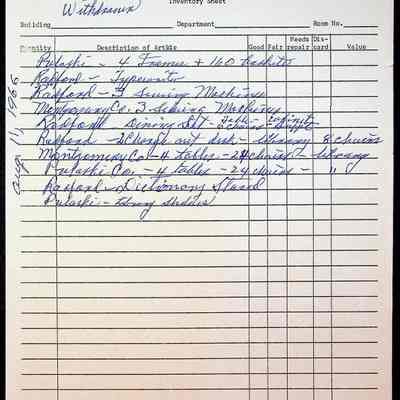 Inventory Sheet
Withdrawn
Building Department Room No.
Quantity Description of Article Good Fair Needs repair Dis- card Value
Pulaski - 4 Frames + 160 baskets
Radford - Typewriter
Radford - 3 Sewing Machines
Montgomery Co. 3 Sewing Machines
Radford Dining Set - Table - 6 chairs - Buffet
Radford - Charge out desk - library 8 chairs
Montgomery Co - 4 tables - 24 chairs - library
Pulaski Co. - 4 tables - 24 chairs - "
Radford - Dictionary Stand
Pulaski - library shelves
Aug 11, 1966